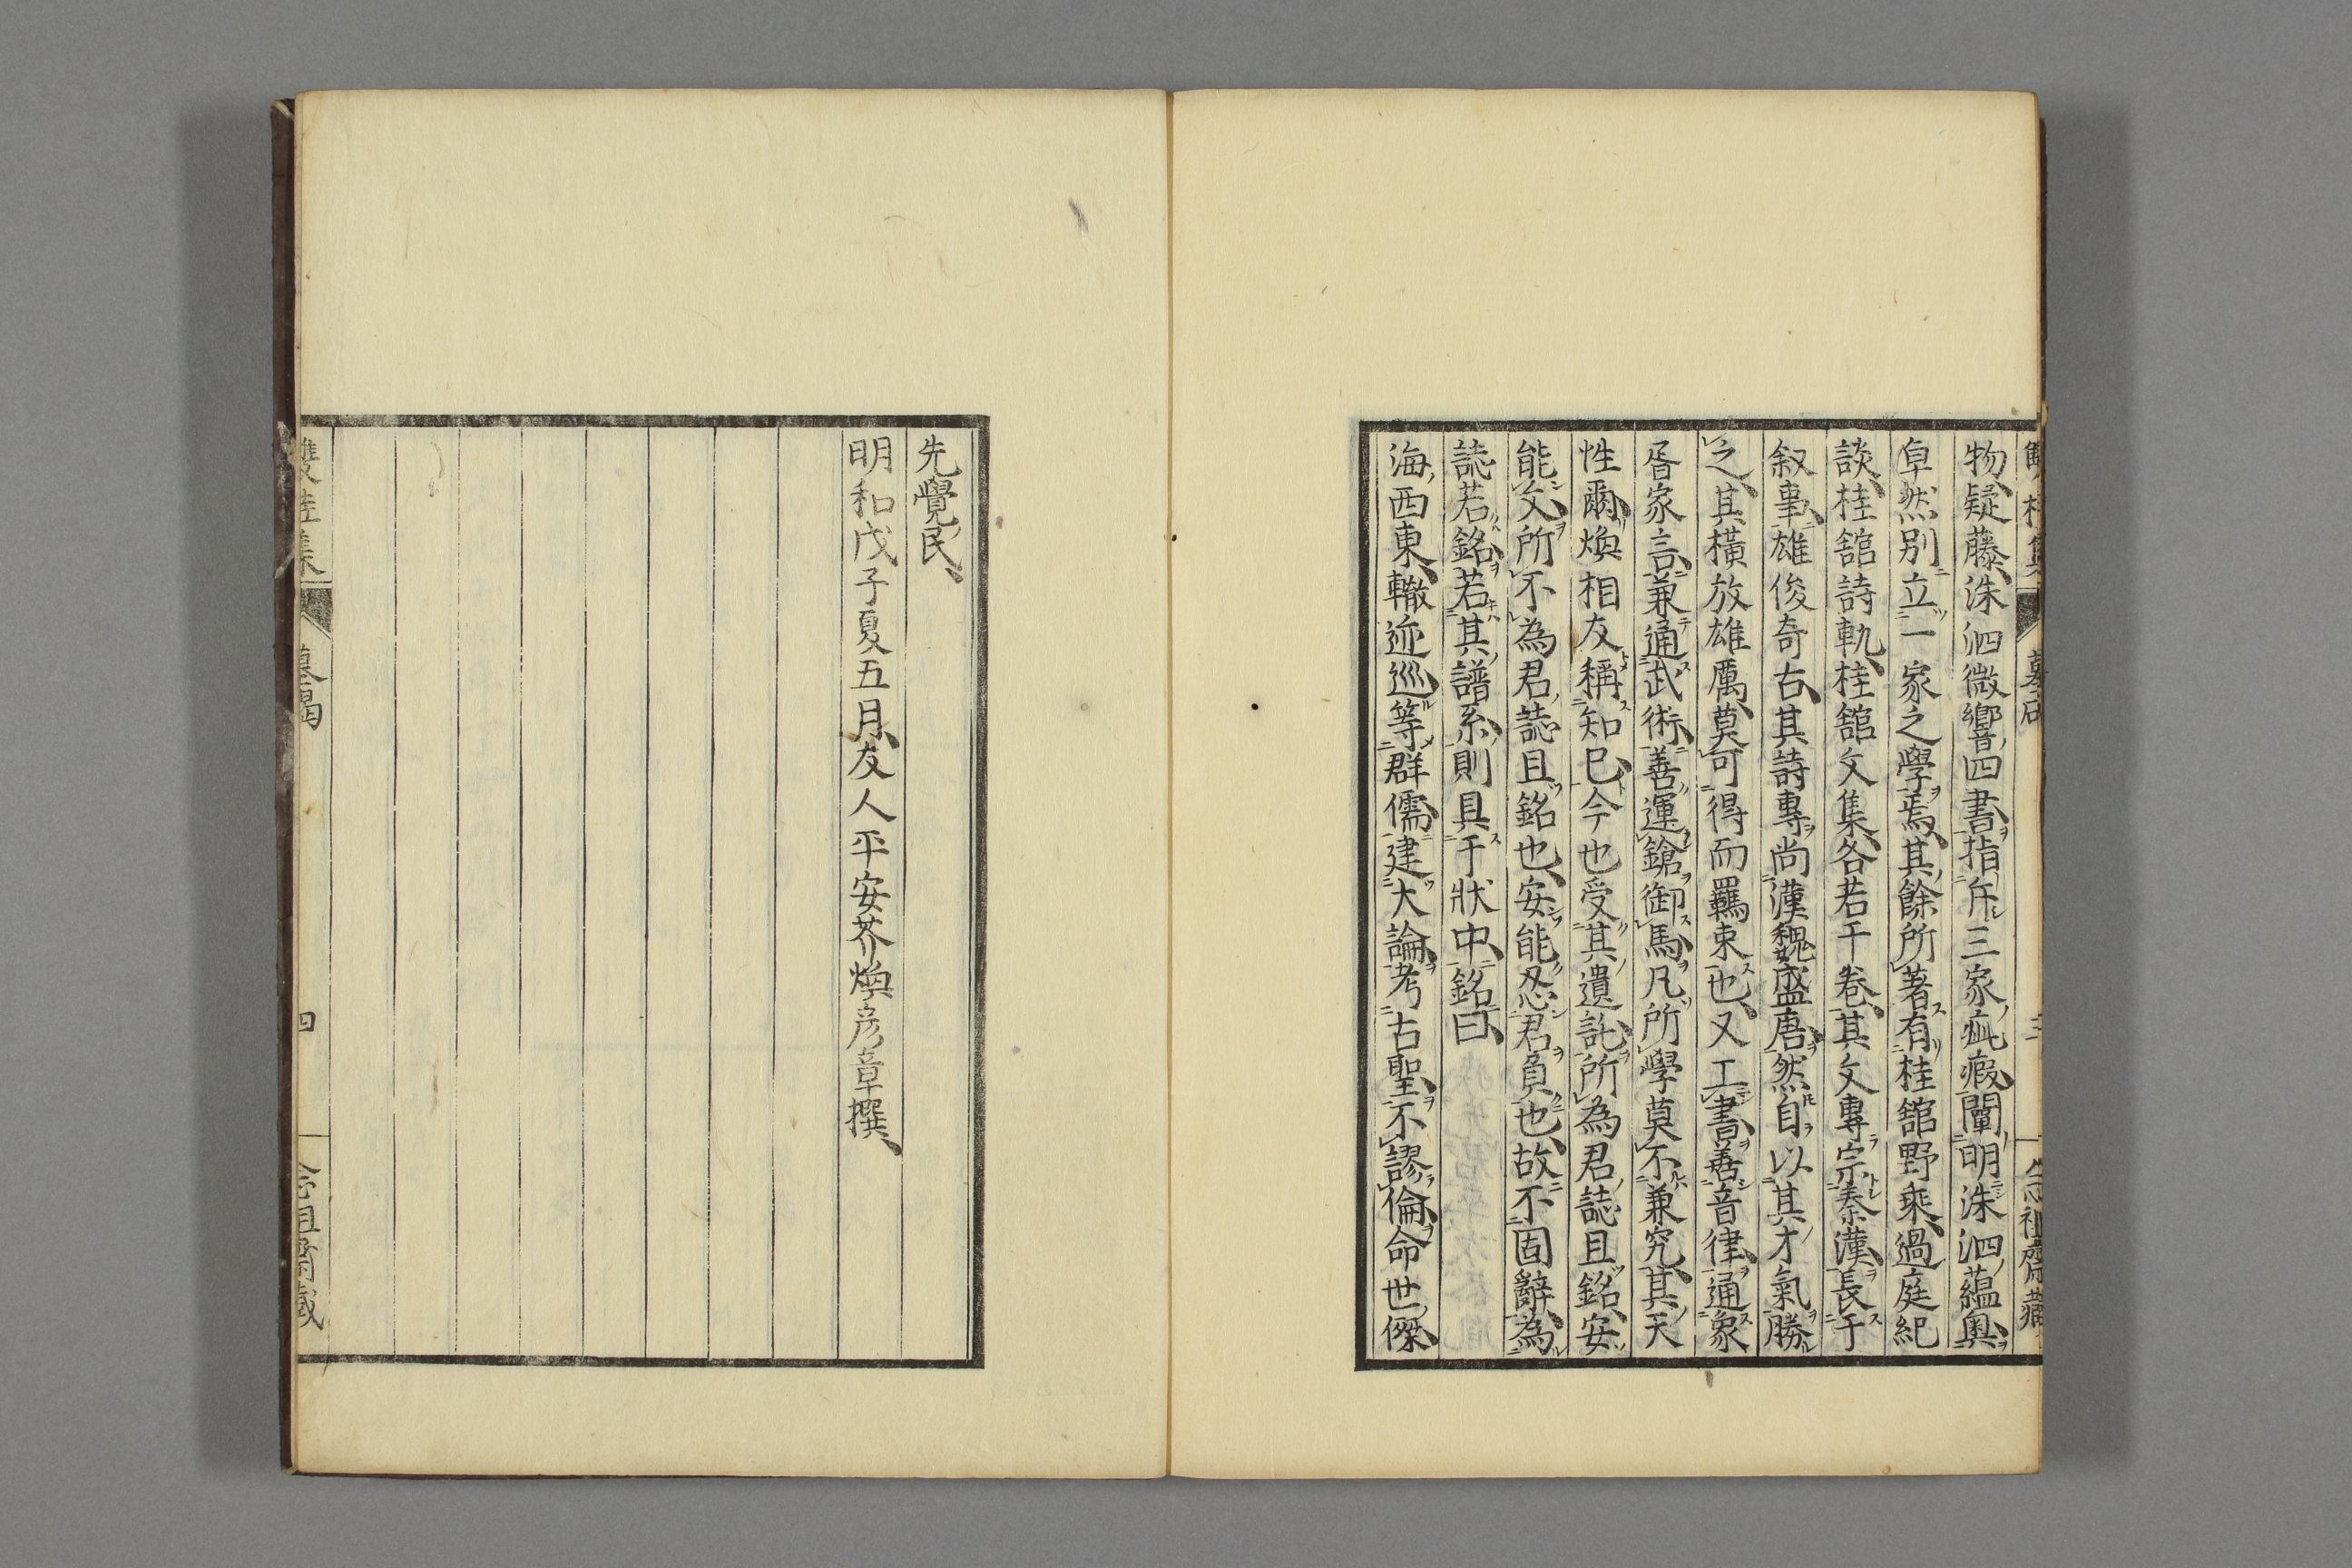 物疑藤洙泗微響四書指斥三家疵瘕闡明洙泗蘊奧
卓然別立一家之學焉其餘所著有桂舘野乘過庭紀
談桂舘詩軌桂舘文集各若干卷其文專宗秦漢長于
叙事雄俊奇古其詩專尚漢魏盛唐然自以其才氣勝
之其橫放雄厲莫可得而羈束也又工書善音律通象
胥家言兼通武術善運鎗御馬凡所學莫不兼究其天
性爾煥相友稱知己今也受其遺託所為君誌且銘安
能文所不為君誌且銘也安能忍君負也故不固辭為
誌若銘若其譜系則具于狀中銘曰
海西東轍迹巡等群儒建大論考古聖不謬倫命世傑
先覺民
明和戊子夏五月友人平安芥煥彦章撰
雙桂集 墓碣 四 念祖齋藏